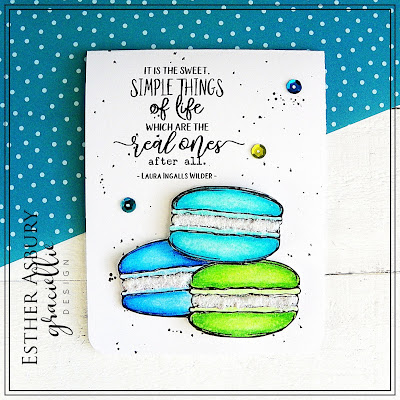 IT IS THE SWEET,
SIMPLE THINGS
of life
WHICH ARE THE
real ones
after all.
- LAURA INGALLS WILDER -
ESTHER ASBURY
graciellie
DESIGN